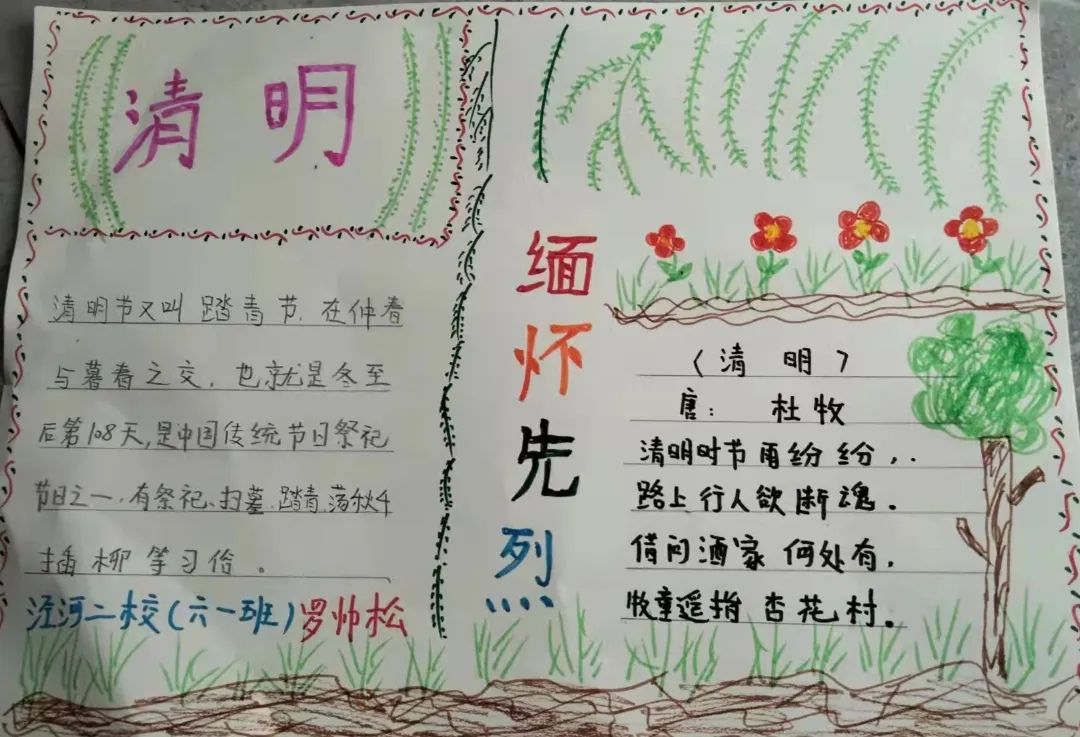 清 明
清明节又叫 踏青 节. 在仲春
与暮春之交, 也就是冬至
后第108天,是中国传统节日祭祀
节日之一.有祭祀、扫墓、踏青、荡秋千
插 柳 等 习俗 。
泾河二校(六一班)罗帅松
缅
怀
先
烈
....
《清 明》
唐: 杜牧
清明时节雨纷纷,.
路上行人欲断魂.
借问酒家 何处有,
牧童遥指 杏花村。